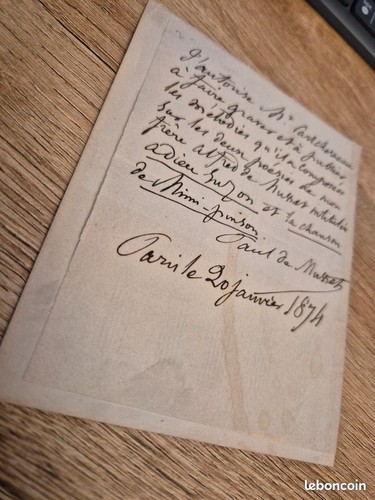 J'autorise Mr
à faire graver et à publier
les mélodies qu'il a composées
sur les deux poësies de mon
frère alfred de Musset intitulées
adieu Suzon et la chanson
de Mimi-pinson
Paul de Musset
Paris le 20 janvier 1874
leboncoin